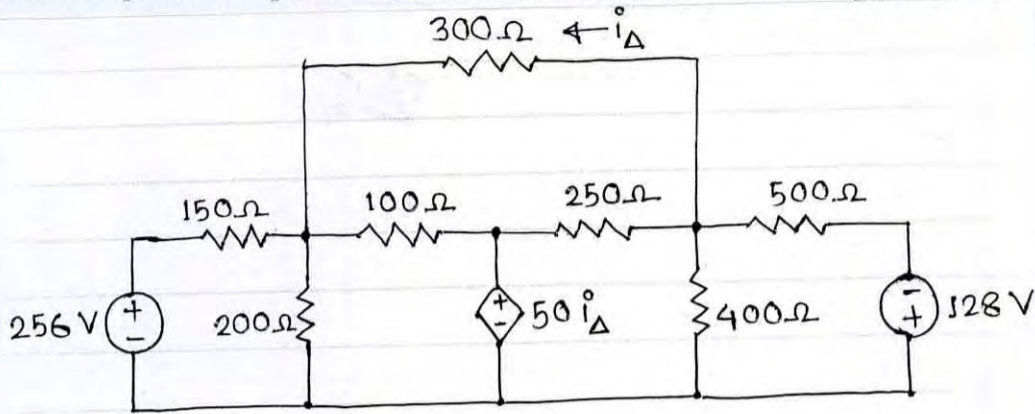 300Ω ← i△
150Ω 100Ω 250Ω 500Ω
256 V + - 200Ω + - 50 i△ 400Ω - + 128 V